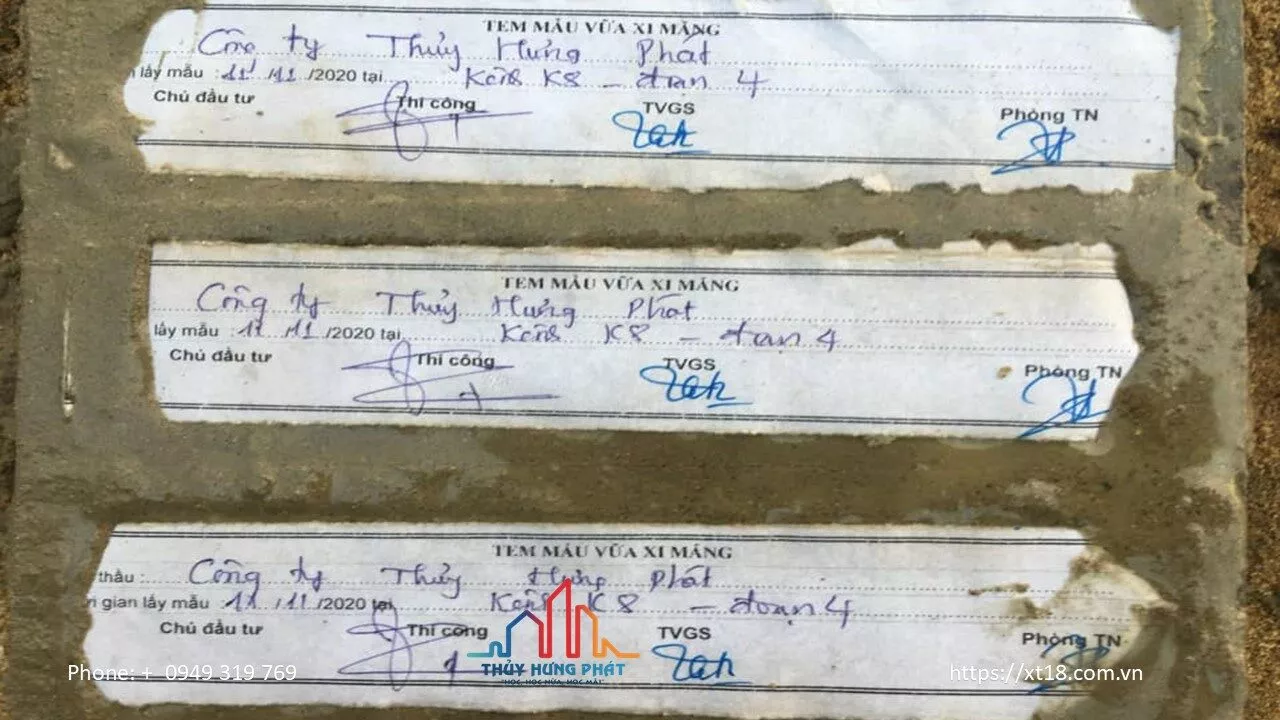 TEM MẪU VỮA XI MĂNG
Công ty Thủy Hưng Phát
lấy mẫu : 11 /11 /2020 tại Kênh K8 – đoạn 4
Chủ đầu tư Thi công TVGS Phòng TN
TEM MẪU VỮA XI MĂNG
Công ty Thủy Hưng Phát
lấy mẫu : 11 /11 /2020 tại Kênh K8 – đoạn 4
Chủ đầu tư Thi công TVGS Phòng TN
TEM MẪU VỮA XI MĂNG
thầu : Công ty Thủy Hưng Phát
gian lấy mẫu : 11 /11 /2020 tại Kênh K8 – đoạn 4
Chủ đầu tư Thi công TVGS Phòng TN
THỦY HƯNG PHÁT
"HỌC, HỌC NỮA, HỌC MÃI"
Phone: + 0949 319 769
https://xt18.com.vn